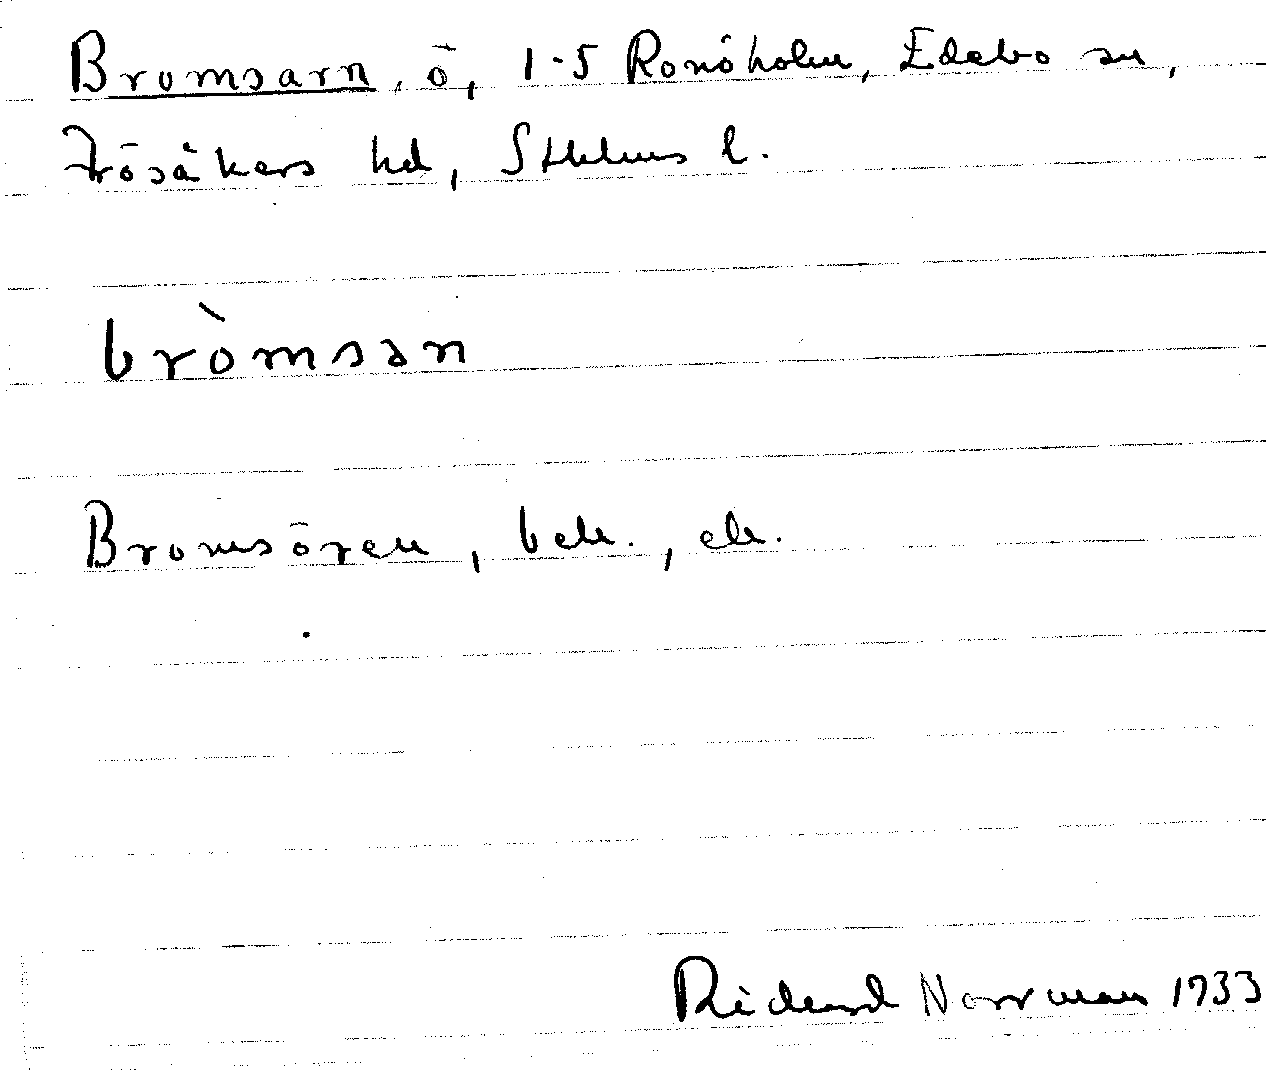 Bromsarn, ö, 1-5 Ronöholm, Edebo sn,
Frösåkers hd, Sthlms l.
bròmsan
Bromsören, bek., ek.
Richard Norrman 1933